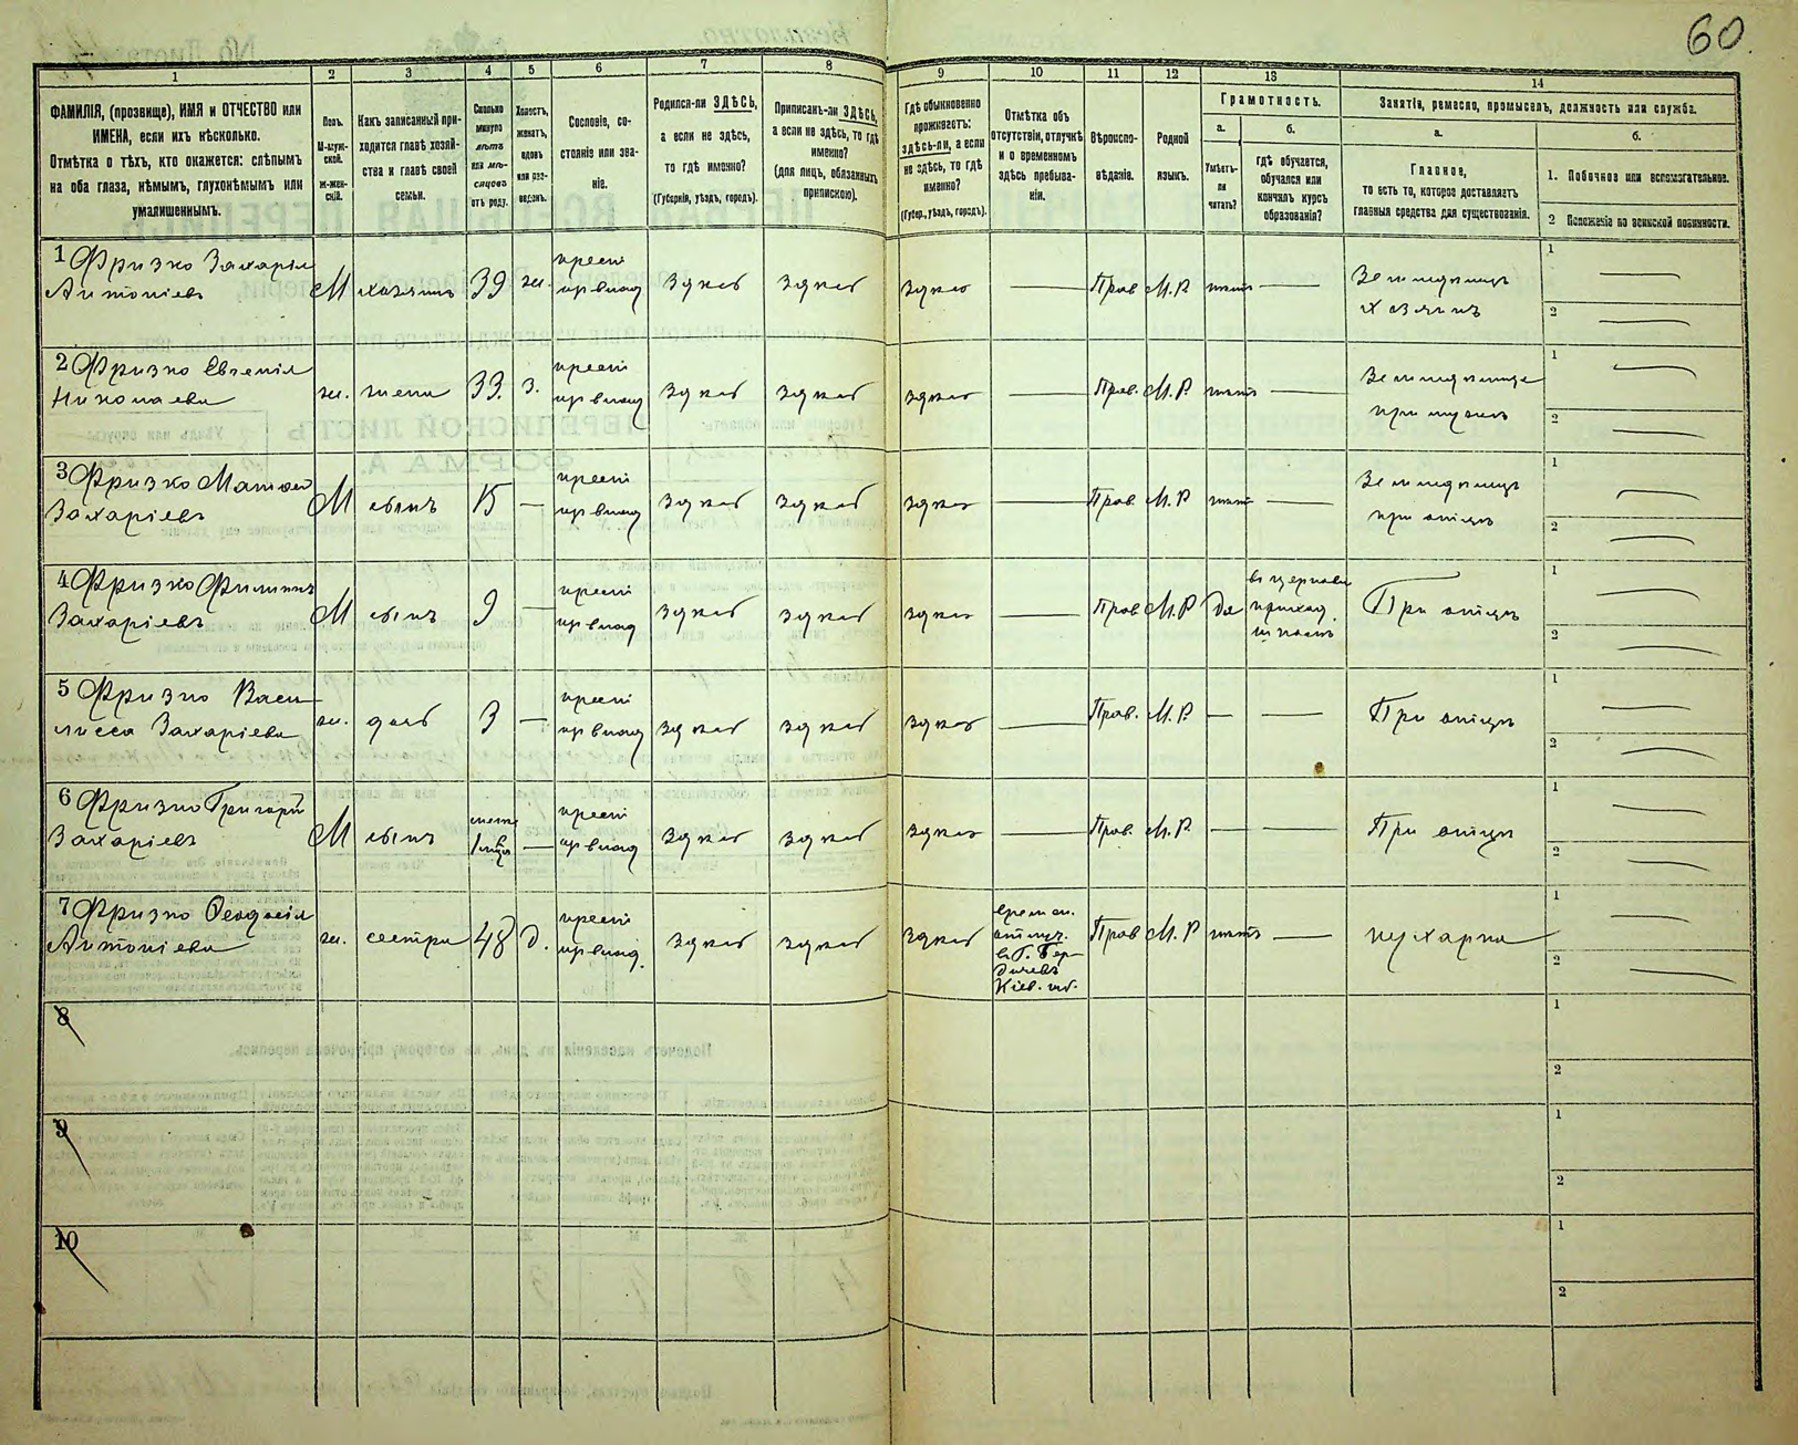 60.
1
2
3
4
5
6
7
8
9
10
11
12
13
14
ФАМИЛІЯ, (прозвище), ИМЯ и ОТЧЕСТВО или
ИМЕНА, если ихъ нѣсколько.
Отмѣтка о тѣхъ, кто окажется: слѣпымъ
на оба глаза, нѣмымъ, глухонѣмымъ или
умалишеннымъ.
Полъ.
М-муж-
ской.
ж-жен-
скій.
Какъ записанный при-
ходится главѣ хозяй-
ства и главѣ своей
семьи.
Сколько
минуло
лѣтъ
или мѣ-
сяцевъ
отъ роду.
Холостъ,
женатъ,
вдовъ
или раз-
веденъ.
Сословіе, со-
стояніе или зва-
ніе.
Родился-ли ЗДѢСЬ,
а если не здѣсь,
то гдѣ именно?
(Губернія, уѣздъ, городъ).
Приписанъ-ли ЗДѢСЬ,
а если не здѣсь, то гдѣ
именно?
(для лицъ, обязанныхъ
припискою).
Гдѣ обыкновенно
проживаетъ:
здѣсь-ли, а если
не здѣсь, то гдѣ
именно?
(Губер., уѣздъ, городъ).
Отмѣтка объ
отсутствіи, отлучкѣ
и о временномъ
здѣсь пребыва-
ніи.
Вѣроиспо-
вѣданіе.
Родной
языкъ.
Грамотность.
а.
Умѣетъ-
ли
читать?
б.
гдѣ обучается,
обучался или
кончилъ курсъ
образованія?
Занятіе, ремесло, промыселъ, должность или служба.
а.
Главное,
то есть то, которое доставляетъ
главныя средства для существованія.
б.
1. Побочное или вспомогательное.
2 Положеніе по воинской повинности.
1 Фризко Захарія
Антоніевъ
М
хозяинъ
39
ж.
крест
здѣсь
здѣсь
здѣсь
—
Прав
М.Р
нѣтъ
—
Земледѣлецъ
хозяинъ
1 —
2 —
2 Фризко Евгенія
Николаева
ж.
жена
33.
з.
крест
здѣсь
здѣсь
здѣсь
—
Прав.
М.Р.
нѣтъ
—
при мужѣ
1 —
2 —
3 Фризко Матвей
Захаріевъ
М
сынъ
15
—
крест
здѣсь
здѣсь
здѣсь
—
Прав
М.Р
нѣтъ
—
Земледѣлецъ
при отцѣ
1 —
2 —
4 Фризко Филиппъ
Захаріевъ
М
сынъ
9
—
крест
здѣсь
здѣсь
здѣсь
—
Прав
М.Р
да
въ церковн
приход.
школѣ
При отцѣ
1 —
2 —
5 Фризко Васи
лисса Захаріева
ж.
дочь
3
—
крест
здѣсь
здѣсь
здѣсь
—
Прав.
М.Р.
—
—
При отцѣ
1 —
2 —
6 Фризко Григорій
Захаріевъ
М
сынъ
—
крест
здѣсь
здѣсь
здѣсь
—
Прав.
М.Р.
—
—
При отцѣ
1 —
2 —
7 Фризко Феодосія
Антоніева
ж.
сестра
48
д.
крест
здѣсь
здѣсь
здѣсь
времен.
отлуч.
въ Г. Бер-
дичевъ
Кіев. губ.
Прав
М.Р
нѣтъ
—
кухарка
1 —
2 —
8
1
2
9
1
2
10
1
2